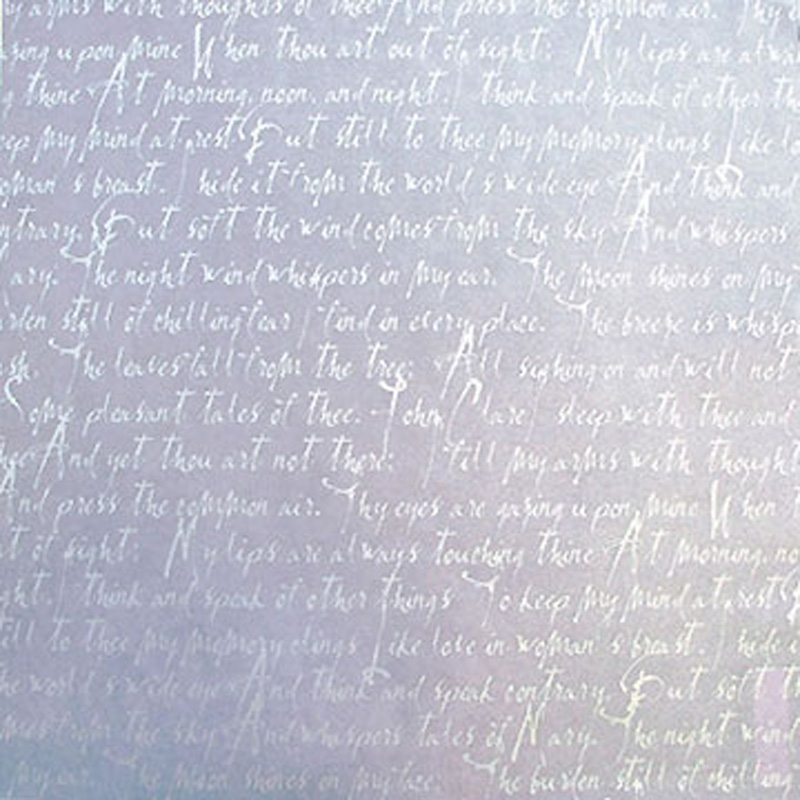 y arms with thoughts of thee And press the common air. Thy e
azing upon mine When thou art out of sight: My lips are alwa
g thine At morning, noon, and night. think and speak of other th
eep my mind at rest But still to thee my memory clings Like lo
oman s breast. I hide it from the world s wide eye And think and
ntrary. But soft the wind comes from the sky And whispers
ary. The night wind whispers in my ear. The moon shines on my
rden still of chilling fear I find in every place. The breeze is whisp
sh. The leaves fall from the tree; All sighing on and will not
Some pleasant tales of thee. John Clare I sleep with thee and
hee And yet thou art not there: I fill my arms with thought
And press the common air. Thy eyes are gazing upon mine When t
t of sight: My lips are always touching thine At morning, no
ght. I think and speak of other things To keep my mind at rest B
till to thee my memory clings Like love in woman s breast. I hide i
he world s wide eye And think and speak contrary. But soft t
mes from the sky And whispers tales of Mary. The night wind
my ear. The moon shines on my face: The burden still of chilling